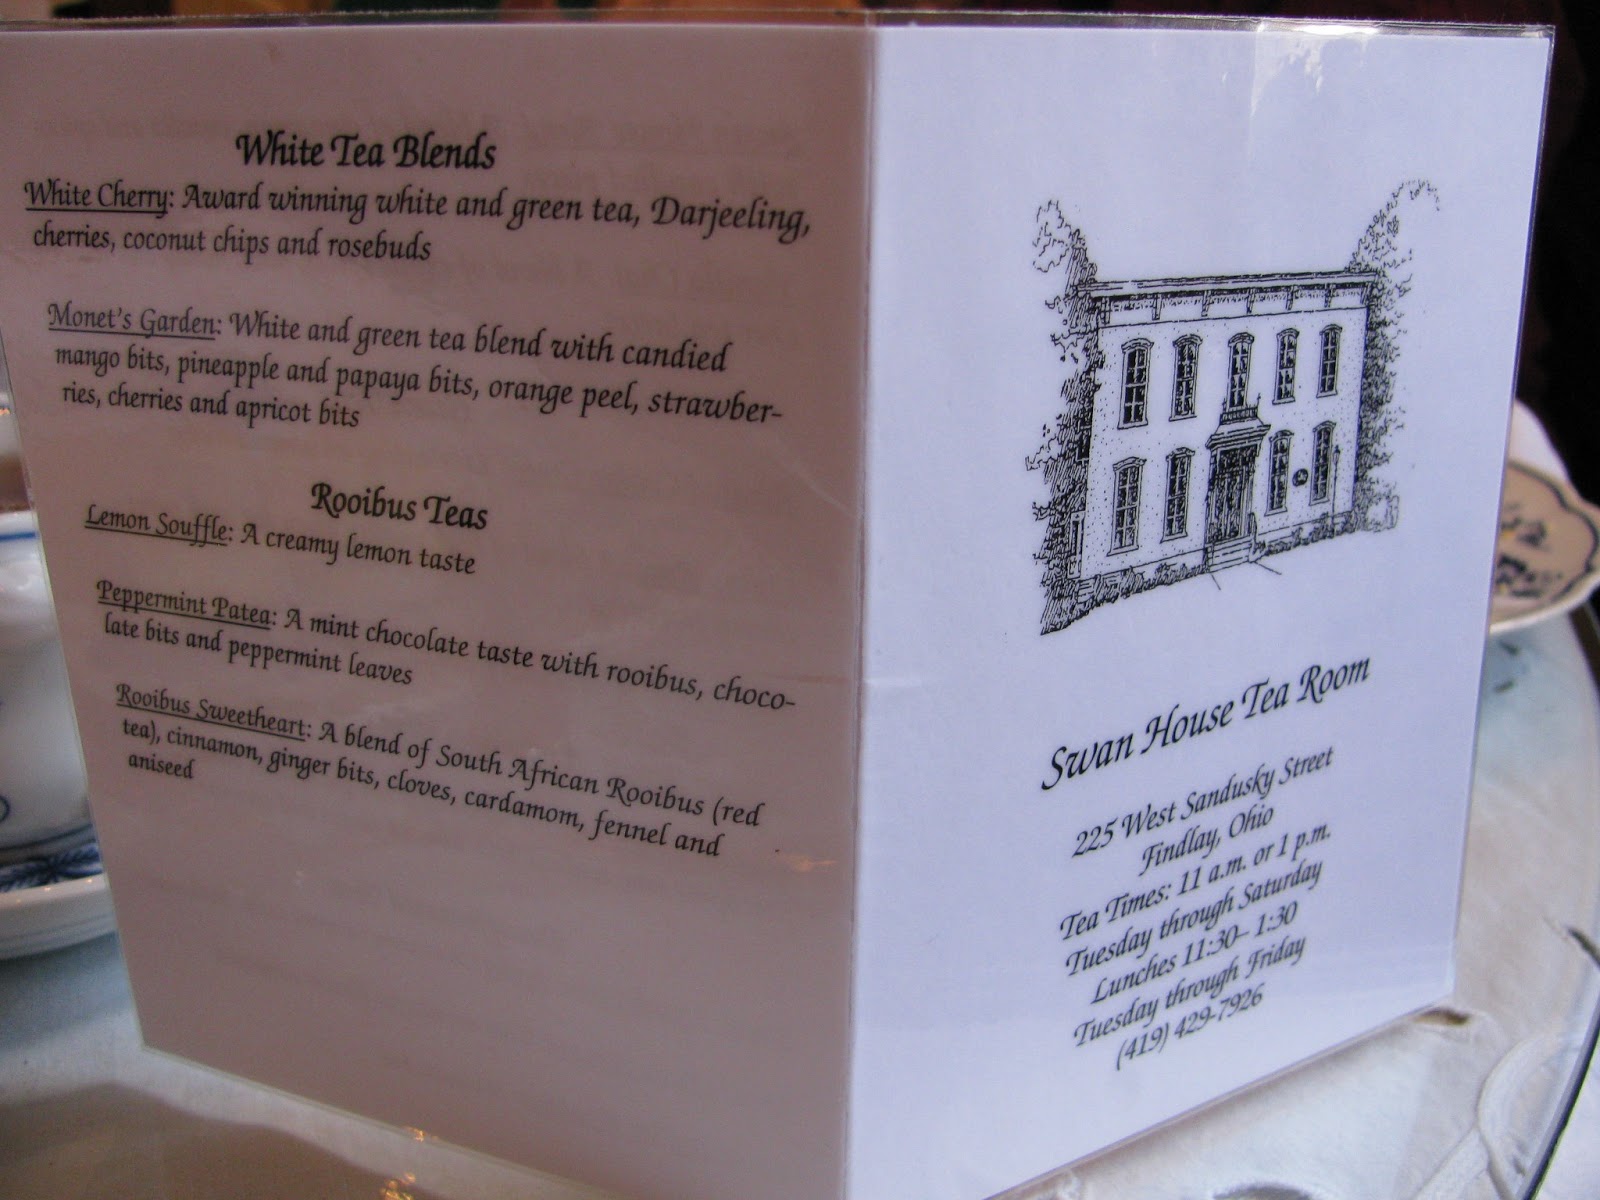 White Tea Blends
White Cherry: Award winning white and green tea, Darjeeling,
cherries, coconut chips and rosebuds
Monet's Garden: White and green tea blend with candied
mango bits, pineapple and papaya bits, orange peel, strawber-
ries, cherries and apricot bits
Rooibus Teas
Lemon Souffle: A creamy lemon taste
Peppermint Patea: A mint chocolate taste with rooibus, choco-
late bits and peppermint leaves
Rooibus Sweetheart: A blend of South African Rooibus (red
tea), cinnamon, ginger bits, cloves, cardamom, fennel and
aniseed
Swan House Tea Room
225 West Sandusky Street
Findlay, Ohio
Tea Times: 11 a.m. or 1 p.m.
Tuesday through Saturday
Lunches 11:30– 1:30
Tuesday through Friday
(419) 429-7926